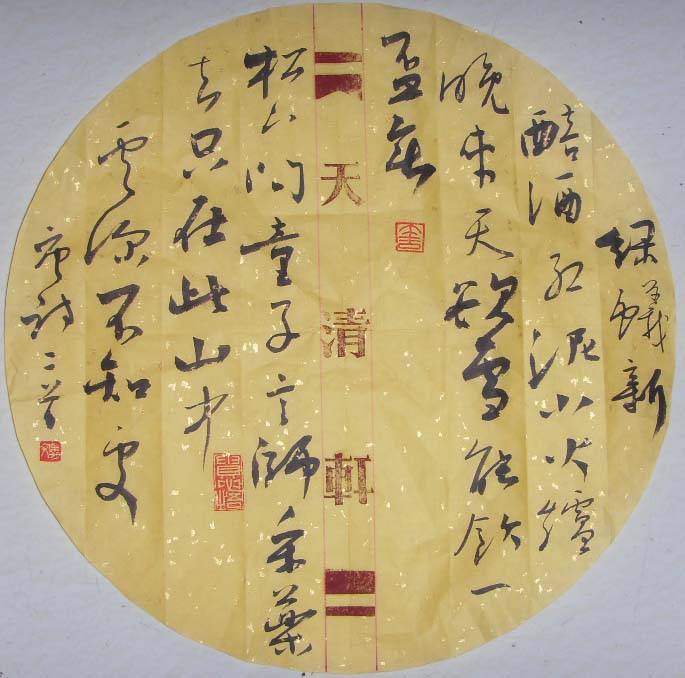 緑蟻新
醅酒红泥小火爐
晚来天欲雪能飲一
盃無
天清軒
松下问童子言师采藥
去只在此山中
雲深不知处
唐诗二首